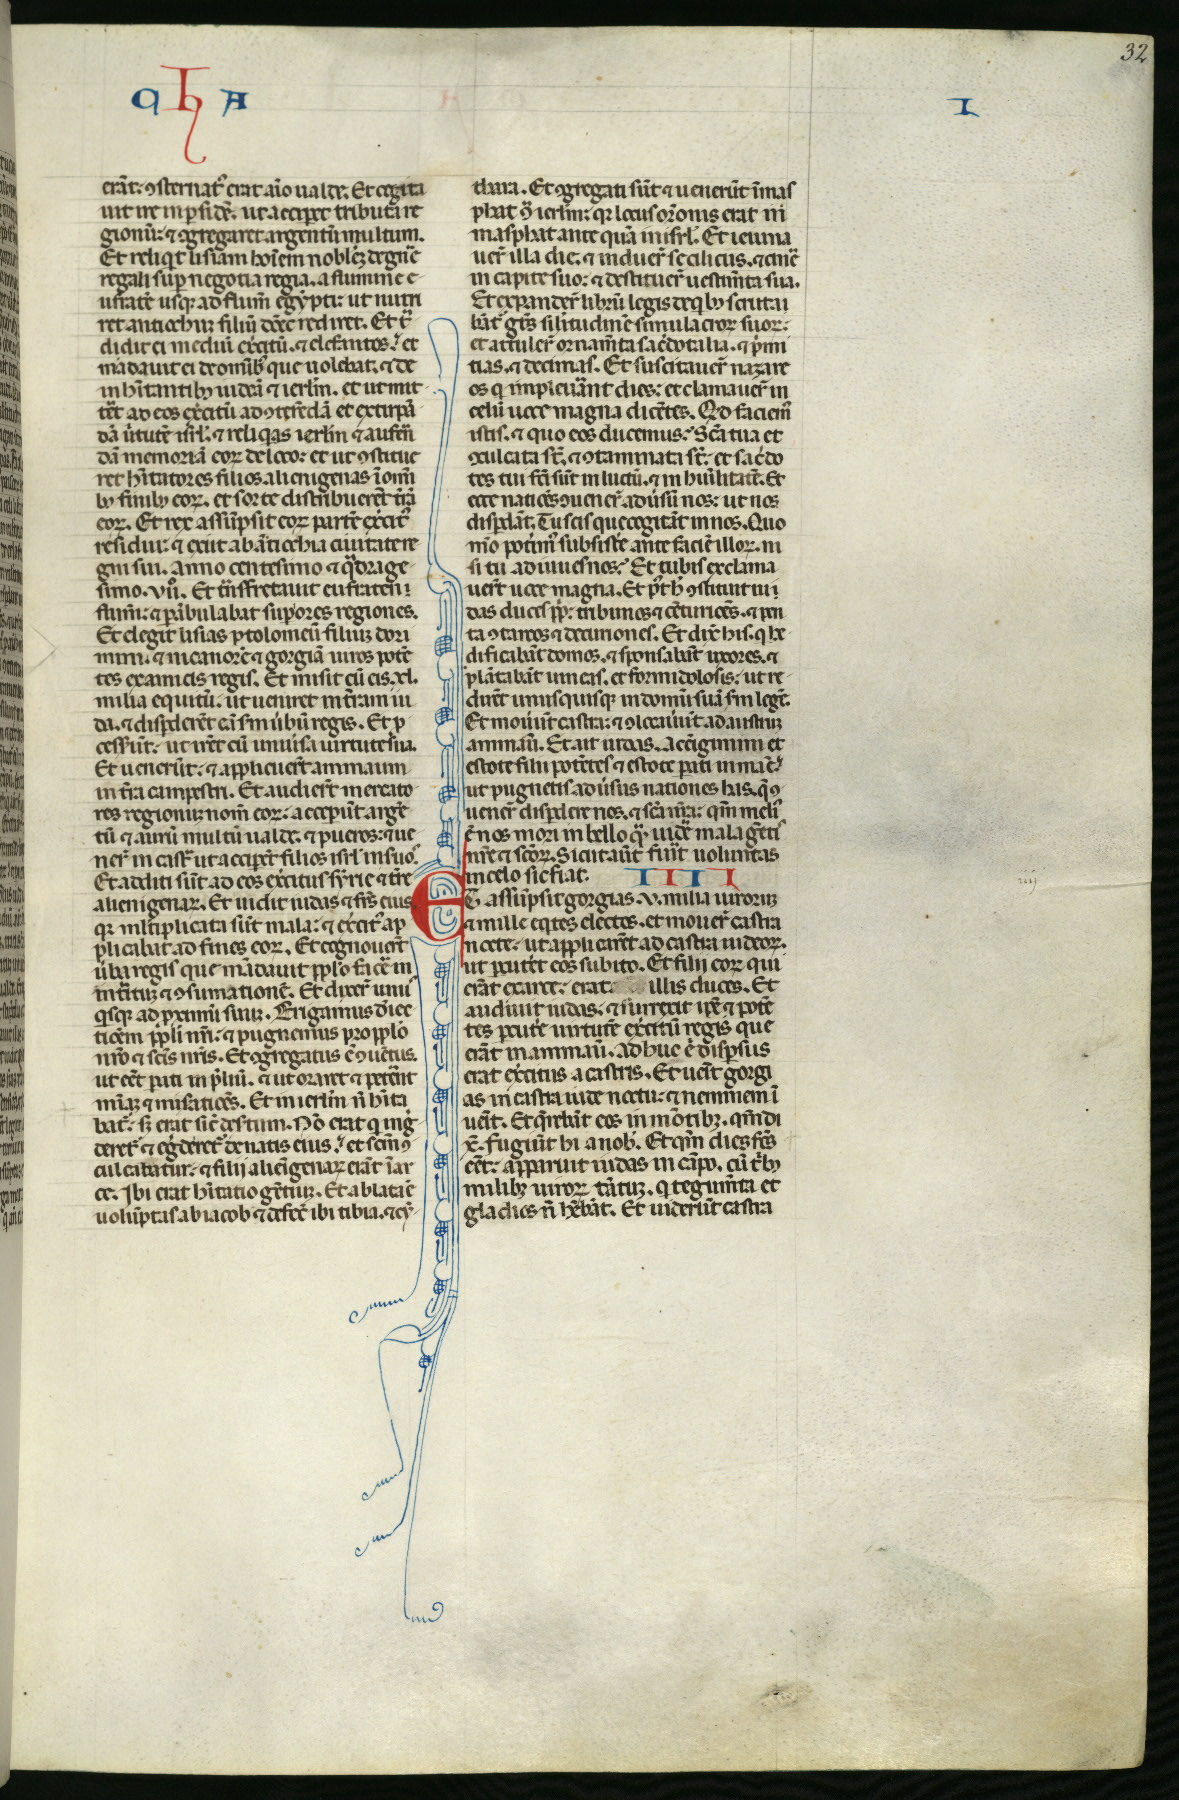 32
chA
I
erāt: ꝯsternatꝰ erat aīo ualde. Et cogita
uit ire in persidē. ut acciperet tributa re
gionū: ⁊ ꝯgregaret argentū multum.
Et reliqͥt lisiam hoīem nobilē de gñe
regali suꝑ negotia regia. a flumine e
ufratē usqꝫ ad flum̄ egypti: ut nutri
ret antiochuꝫ filiū donec rediret. Et t̄
didit ei mediū ex̄citū. ⁊ elefantos. et
mādauit ei de omibꝫ que uolebat. ⁊ de
inhītantibꝫ iudeā ⁊ ierlm̄. et ut mit
tēt ad eos ex̄citū ad ꝯterēdā et extirpā
dā uirtutē isrl̄. ⁊ reliqͥas ierlm̄ ⁊ auferē
dā memoriā eoꝝ de loco: et ut ꝯstitue
ret hītatores filios alienigenas ī omī
bꝫ finibꝫ eoꝝ. et sorte distribueret trā
eoꝝ. Et rex assūpsit eoꝝ partē ex̄citꝰ
residui: ⁊ exiit ab antiochia ciuitate re
gni sui. anno centesimo ⁊ qͣdrage
simo. vijͦ. Et tnsfretauit eufraten
flum̄: ⁊ ꝑābulabat suꝑiores regiones.
Et elegit lisias ptolomeū filiuꝫ dori
mini: ⁊ nicanorē ⁊ gorgiā uiros potē
tes ex amicis regis. Et misit cū eis .xl.
milia equitū: ut ueniret in trām iu
da. ⁊ disꝑderēt eā scd̄m ūbū regis. Et ꝓ
cessūt: ut irēt cū uniūsa uirtute sua.
Et uenerūt: ⁊ applicuert̄ ammaum
in tra campestri. Et audiert̄ mercato
res regionuꝫ nom̄ eoꝝ: acceꝑūt argē
tū ⁊ aurū multū ualde. ⁊ pueros: ⁊ ue
ner̄ in castͣ ut acciꝑēt filios isrl̄ in suoˢ.
Et additi sūt ad eos ex̄citus syrie ⁊ tr̄e
alienigenaꝝ. Et uidit iudas ⁊ frs̄ eius
qꝛ mltiplicata sūt mala: ⁊ ex̄citꝰ ap
plicabat ad fines eoꝝ. Et cognouert̄
ūba regis que mādauit pplo facē in
intitū ⁊ ꝯsumationē. Et dixer̄ unusͥ
qͥsqꝫ ad ꝓximū suuꝫ. Erigamus deiec
tionem ppli nri: ⁊ pugnemus pro pplo
nro ⁊ scīs nris. Et ꝯgregatus ē ꝯuētus.
ut eēt ꝑati in p̄liū. ⁊ ut orarēt ⁊ peterēt
miam ⁊ misatiōes. Et ierlm̄ ñ hīta
bat: sꝫ erat sic̄ desertum. Nō erat qͥ ing
deret̄ ⁊ eg̃deret̄ de natis eius. et scm̄ ꝯ
culcabatur. ⁊ filij alienigenaꝝ erāt ī ar
ce. Ibi erat hītatio gentiū. Et ablata ē
uolūptas ab iacob ⁊ defec̄ ibi tibia. ⁊ cy
thara. Et ꝯgregati sūt ⁊ uenerūt ī mas
phat ꝯͣ ierlm̄: qꝛ locus orōnis erat in
masphat ante quā in isrl̄. Et ieiuna
uer̄ illa die. ⁊ induer̄ se cilicus. ⁊ cinē
in capite suo: ⁊ destituer̄ uestim̄ta sua.
Et expander̄ librū legis de qͥbꝫ scruta
bāt̄ gtēs similitudinē simulacroꝝ suoꝝ:
et attuler̄ ornam̄ta sac̄dotalia. ⁊ pͥmi
tias. ⁊ decimas. Et suscitauer̄ nazare
os qͥ impleuānt dies: et clamauer̄ in
celū uoce magna dicētes. Qd faciem̄
istis. ⁊ quo eos ducemus. Scā tua et
ꝯculcata st̄. ⁊ ꝯtaminata st̄: et sac̄do
tes tui fcī sūt in luctū. ⁊ in hūilitatē. Et
ecce natiōes ꝯuener̄ adūsū nos: ut nos
disꝑdāt. Tu scis que cogitāt in nos. Quo
mō poterimꝰ subsistē ante faciē illoꝝ. ni
si tu adiuues nos. Et tubis exclama
uert̄ uoce magna. Et pͭ h̄ ꝯstituit iu
das duces pp̄li: tribunos ⁊ cēturiōes. ⁊ pen
tacōtarcos ⁊ decuriones. Et dix̄ his. qͥ he
dificabāt domos. ⁊ sponsabāt uxores. ⁊
plātabāt uineas. et formidolosis: ut re
dirēt unusquisqꝫ in domū suā scdm̄ legē.
Et mouert̄ castra: ⁊ ꝯlocauert̄ ad austruꝫ
ammaū. Et ait iudas. Accingimini et
estote filij potētes ⁊ estote ꝑati in mane
ut pugnetis adūsus nationes has. qͤ ꝯ
uener̄ disꝑdere nos. ⁊ scā nrā: qm̄ meliꝰ
ē nos mori in bello qͣꝫ uidē mala gētis
nrē ⁊ scōꝝ. Sicut aūt fuīt uoluntas
in celo sic fiat. IIII
ET assūpsit gorgias .v. milia uiroruꝫ
⁊ mille eqͥtes electos. et mouer̄ castra
nocte: ut applicarēt ad castra iudeoꝝ.
ut ꝑcuterēt eos subito. Et filij eoꝝ qui
erāt ex arce: erāt illis duces. Et
audiuit iudas: ⁊ surrexit ip̄e ⁊ potē
tes ꝑcutē uirtutē ex̄citū regis que
erāt in ammaū. ad huc ē disꝑsus
erat ex̄citus a castris. Et uēit gorgi
as in castra iude noctu: ⁊ neminem ī
uēit. Et qͣrebāt eos in mōtibꝫ. qm̄ di
xͭ. fugiūt hi a nobͥ. Et qm̄ dies frs̄
eēt: apparuit iudas in cāpo. cū tͥbꝫ
milibꝫ uiroꝝ tātuꝫ. qͥ tegum̄ta et
gladios ñ hēbāt. Et uiderūt castra
iiij